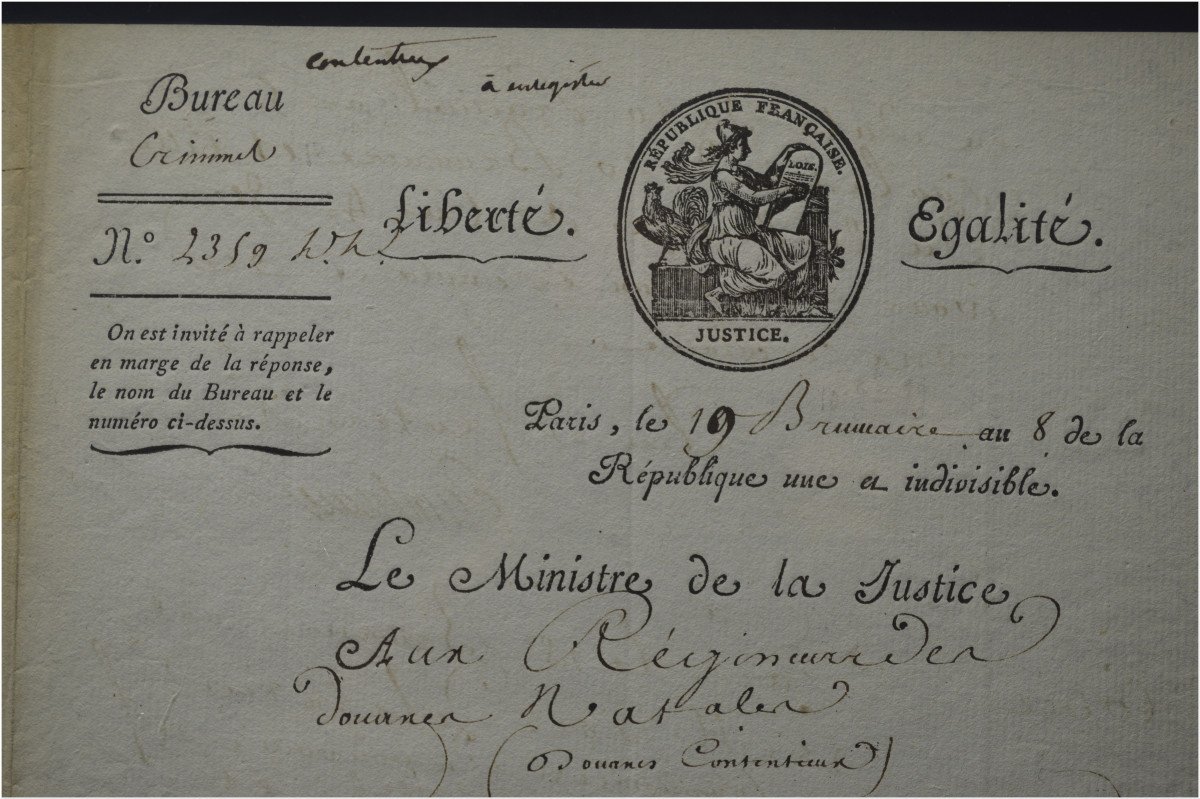 contentieux
à enregistrer
Bureau
Criminel
RÉPUBLIQUE FRANÇAISE.
LOIS.
Liberté.
Egalité.
N.º 2359
JUSTICE.
On est invité à rappeler
en marge de la réponse,
le nom du Bureau et le
numéro ci-dessus.
Paris, le 19 Brumaire an 8 de la
République une et indivisible.
Le Ministre de la Justice
Aux Régisseurs des
douanes Natales
(Douanes Contentieux)